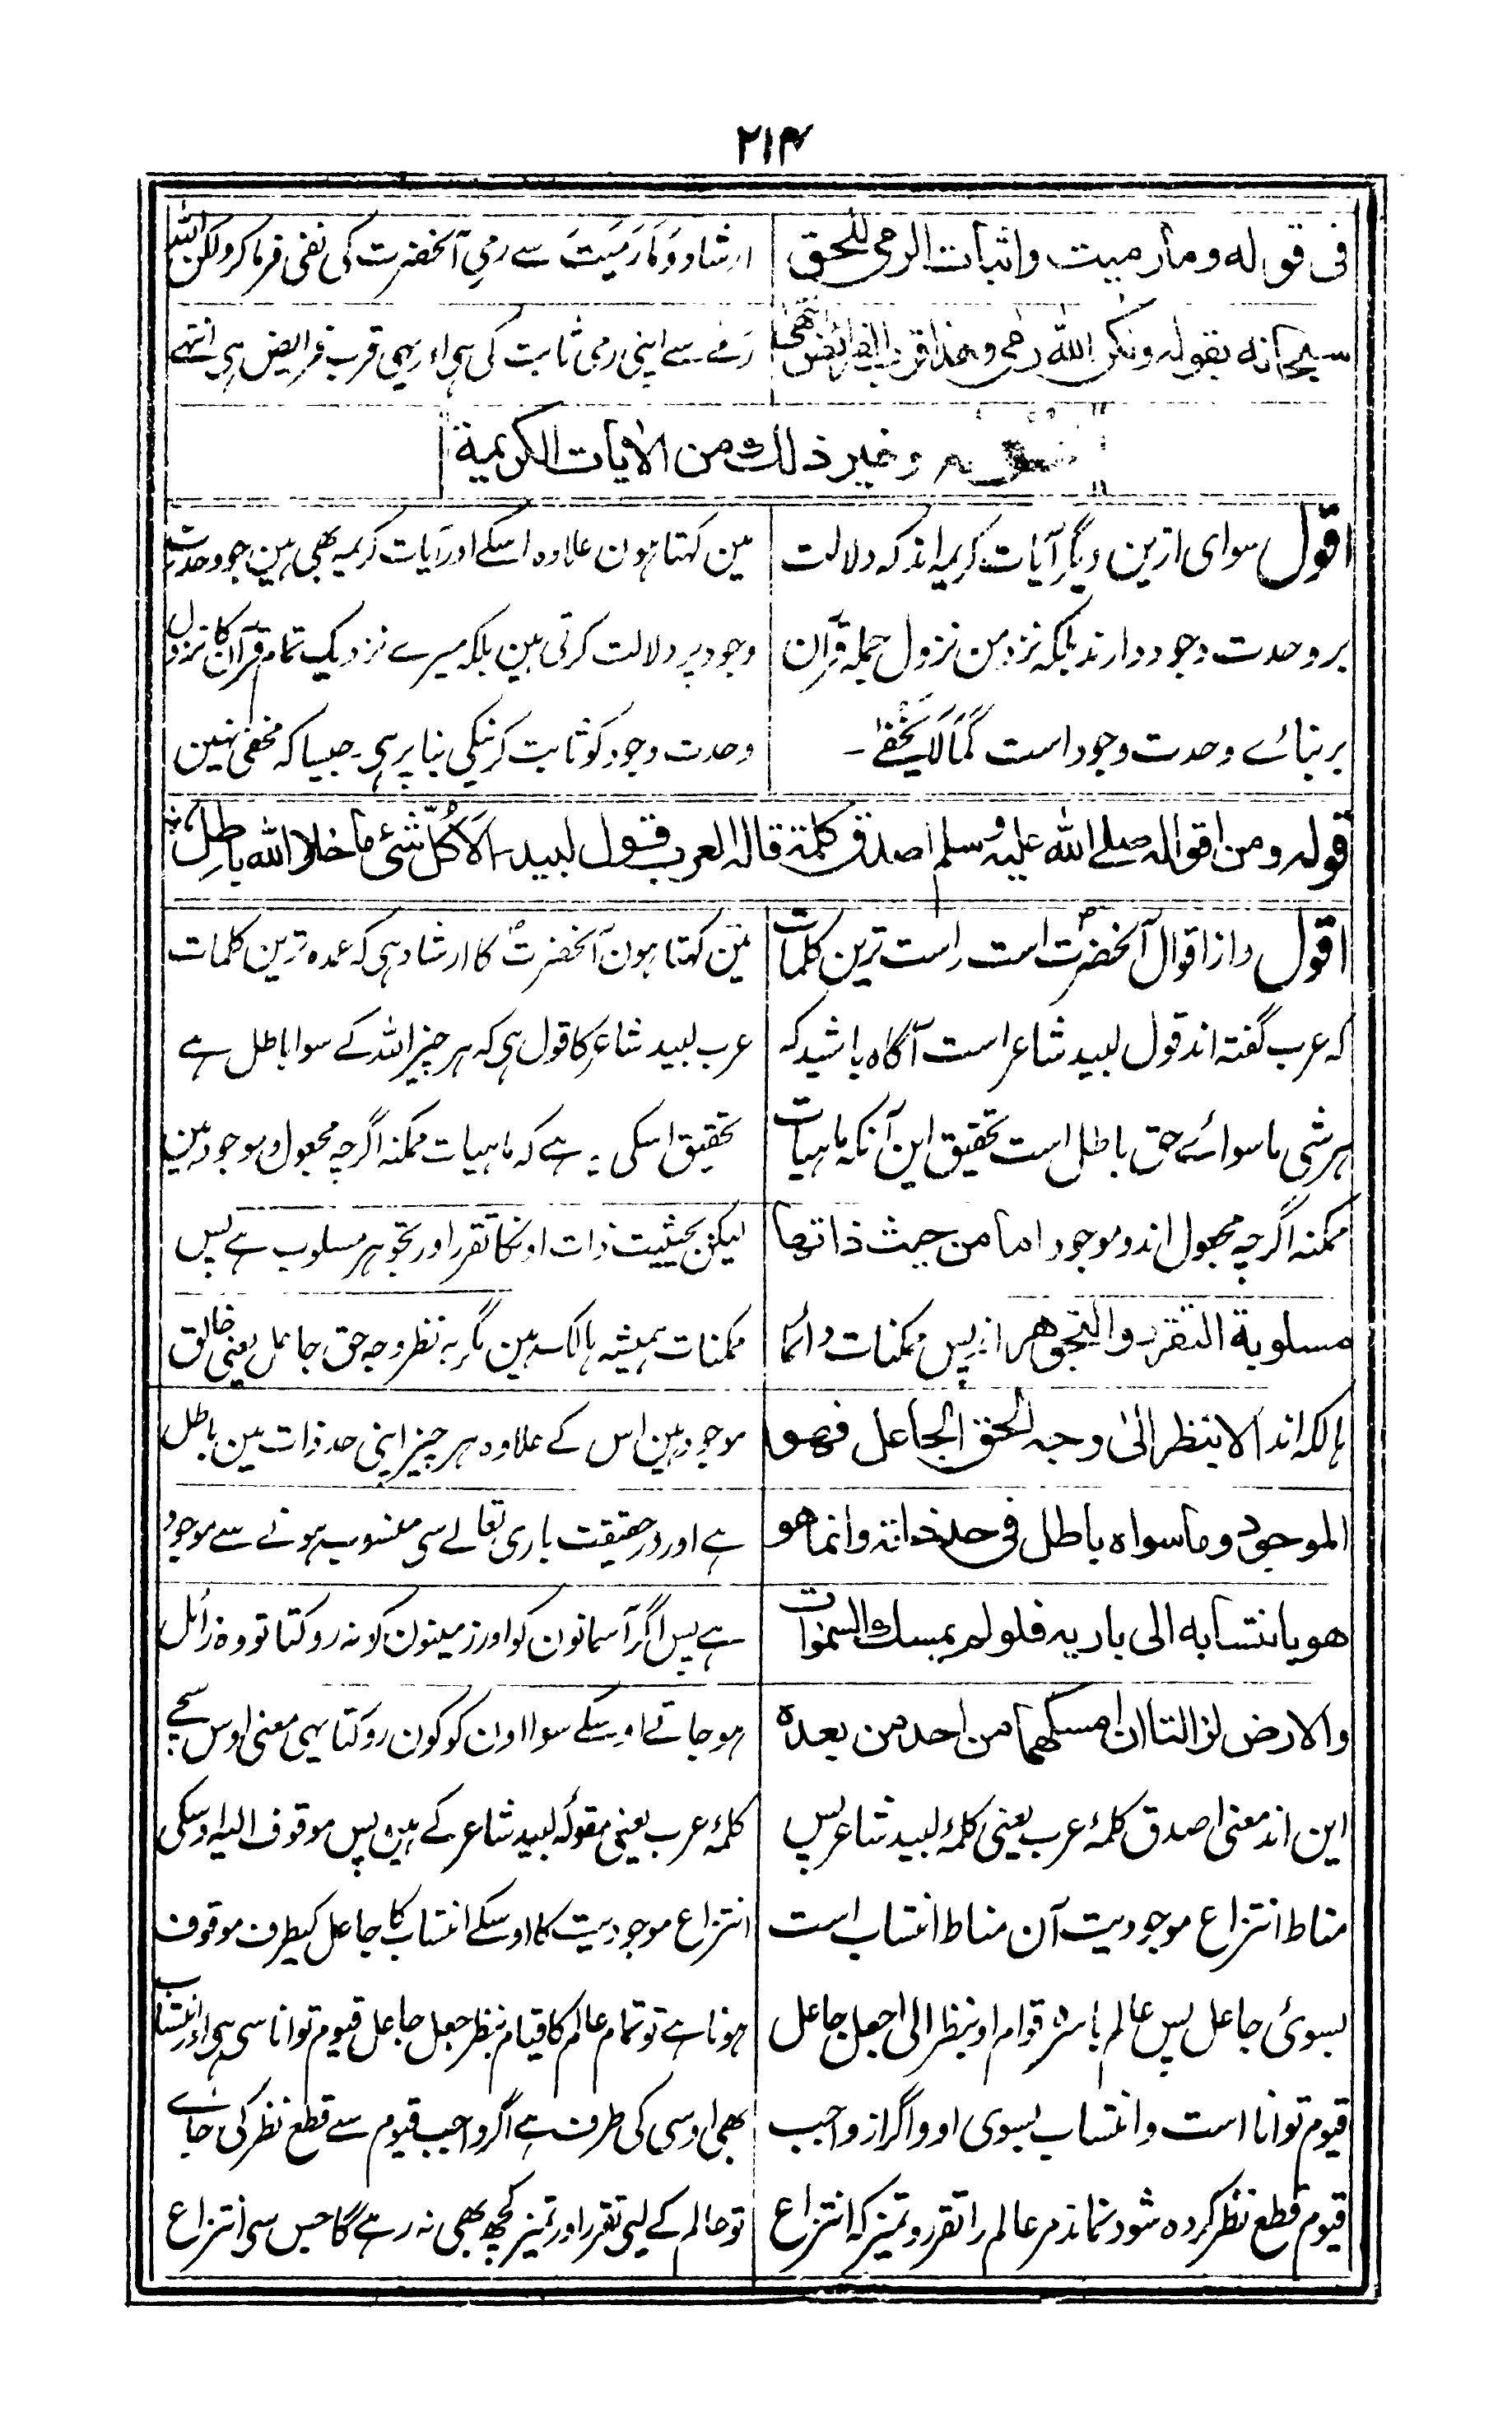 ۲۱۴
فی قوله وما رمیت واثبات الرمی للحق
سبحانه بقوله ولکن الله رمی وهذا قرب الفرائض انتهی
ارشاد وَمَا رَمَیتَ سے رمیِ آنحضرت کی نفی فرما کر ولکن اللہ
رَمٰے سے اپنی رمی ثابت کی ہی اور یہی قرب فرایض ہی انتہے
وغیر ذلك من الایات الکریمة
اقول سوای ازین دیگر آیات کریمہ اند کہ دلالت
بر وحدت وجود دارند بلکہ نزد من نزول جملہ قرآن
بر بنائے وحدت وجود است کَمَا لَا یَخْفٰے ۔
مین کہتا ہون علاوہ اسکے اور آیات کریمہ بھی ہین جو وحدت
وجود پر دلالت کرتی ہین بلکہ میرے نزدیک تمام قرآن کا نزول
وحدت وجود کو ثابت کرنیکی بنا پر ہی ۔ جیسا کہ مخفی نہین
قوله ومن اقواله صلے الله علیه وسلم اصدق کلمة قاله العرب قول لبید ۔ اَلَا کُلُّ شَیٔ ما خلا الله باطِل
اقول و از اقوال آنحضرت ؐ است راست ترین کلمات
کہ عرب گفتہ اند قول لبید شاعر است آگاہ باشید کہ
ہر شی ماسوائے حق باطل است تحقیق این آنکہ ماہیات
ممکنہ اگرچہ مجعول اند و موجود اما من حیث ذاتها
مسلوبة التقرر والتجوهر اند پس ممکنات دائما
ہالکہ اند الا بنظر الیٰ وجه الحق الجاعل فهو
الموجود وما سواه باطل فی حد ذاته وانما هو
هو بانتسابه الی باریه فلو لم یمسك السموات
والارض لزالتا ان امسکهما من احد من بعده
این اند معنی اصدق کلمۂ عرب یعنی کلمۂ لبید شاعر پس
مناط انتزاع موجودیت آن مناط انتساب است
بسوئ جاعل پس عالم باسرہ قوام او بنظر الی جعل جاعل
قیوم توانا است و انتساب بسوی او و اگر از واجب
قیوم قطع نظر کردہ شود نماند مر عالم را تقرر و تمیز کہ انتزاع
مین کہتا ہون آنحضرت ؐ کا ارشاد ہی کہ عمدہ ترین کلمات
عرب لبید شاعر کا قول ہی کہ ہر چیز اللہ کے سوا باطل ہے
تحقیق اسکی یہ ہے کہ ماہیات ممکنہ اگرچہ مجعول و موجود ہین
لیکن بحیثیت ذات اونکا تقرر اور تجوہر مسلوب ہے پس
ممکنات ہمیشہ ہالک ہین مگر بہ نظر وجہ حق جاعل یعنی خالق
موجود ہین اس کے علاوہ ہر چیز اپنی حد ذات مین باطل
ہے اور در حقیقت باری تعالے سی منسوب ہونے سے موجود
ہے پس اگر آسمانون کو اور زمینون کو نہ روکتا تو وہ زائل
ہو جاتے اوسکے سوا اون کو کون روکتا یہی معنی اوس سچے
کلمۂ عرب یعنی مقولۂ لبید شاعر کے ہین پس موقوف الیہ اوسکی
انتزاع موجودیت کا اوسکے انتساب کا جاعل کیطرف موقوف
ہونا ہے تو تمام عالم کا قیام بنظر جعل جاعل قیوم توانا سی ہی اور انتساب
بھی اوسی کی طرف ہے اگر واجب قیوم سے قطع نظر کی جاے
تو عالم کے لیی تقرر اور تمیز کچھ بھی نہ رہے گا جس سی انتزاع